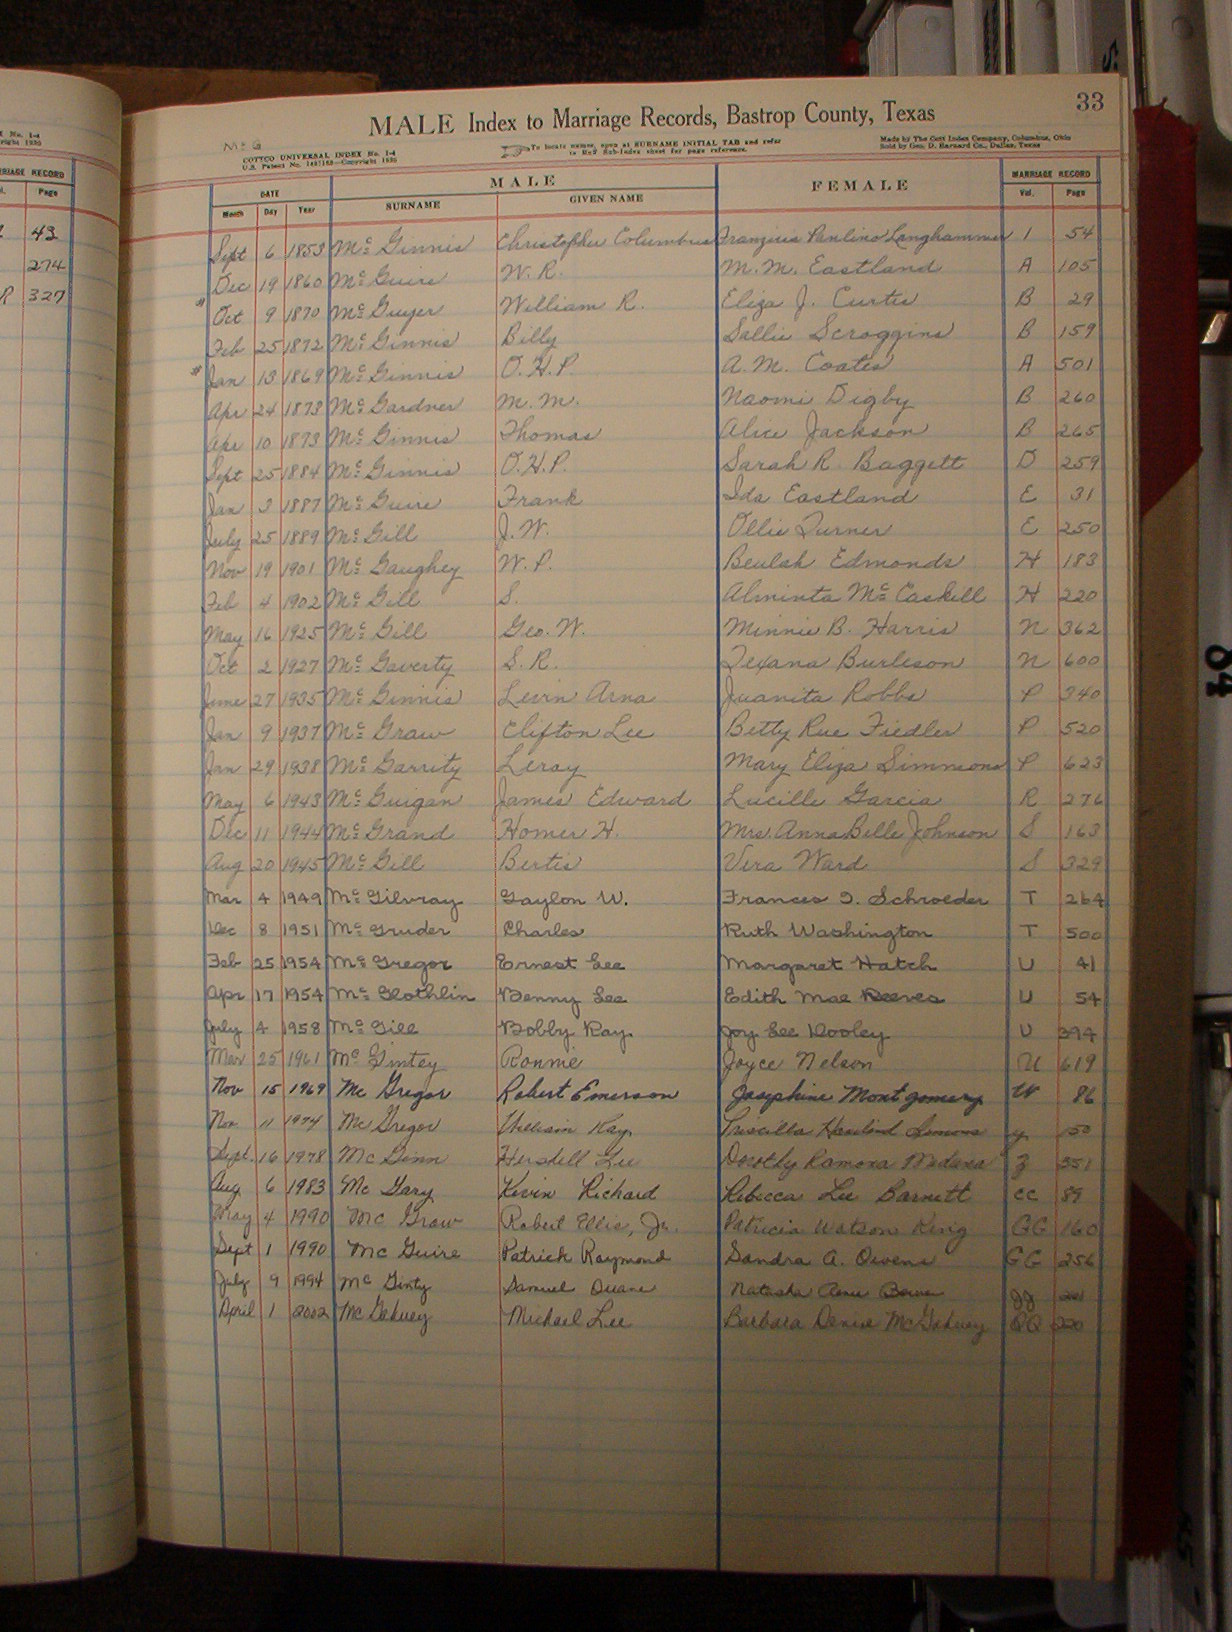 33
MALE Index to Marriage Records, Bastrop County, Texas
Mc G
COTTCO UNIVERSAL INDEX No. 1-4
To locate names, open at SURNAME INITIAL TAB and refer
Made by The Cott Index Company, Columbus, Ohio
Sold by Geo. D. Barnard Co., Dallas, Texas
DATE MALE FEMALE MARRIAGE RECORD
Month Day Year SURNAME GIVEN NAME Vol. Page
Sept 6 1853 Mc Ginnis Christopher Columbus Langhammer 1 54
Dec 19 1860 Mc Guire W. R. M. M. Eastland A 105
Oct 9 1870 Mc Guyer William R. Eliza J. Curtis B 29
Feb 25 1872 Mc Ginnis Billy Sallie Scroggins B 159
Jan 13 1869 Mc Ginnis O. H. P. A. M. Coates A 501
Apr 24 1873 Mc Gardner M. M. Naomi Digby B 260
Apr 10 1873 Mc Ginnis Thomas Alice Jackson B 265
Sept 25 1884 Mc Ginnis O. H. P. Sarah R. Baggett D 259
Jan 3 1887 Mc Guire Frank Ida Eastland E 31
July 25 1889 Mc Gill J. W. Ollie Turner E 250
Nov 19 1901 Mc Gaughey W. P. Beulah Edmonds H 183
Feb 4 1902 Mc Gill S. Alminta Mc Caskill H 220
May 16 1925 Mc Gill Geo. W. Minnie B. Harris N 362
Oct 2 1927 Mc Gaverty S. R. Texana Burleson N 600
June 27 1935 Mc Ginnis Levin Arna Juanita Robbs P 340
Jan 9 1937 Mc Graw Clifton Lee Betty Rue Fiedler P 520
Jan 29 1938 Mc Garrity Leroy Mary Eliza Simmons P 623
May 6 1943 Mc Guigan James Edward Lucille Garcia R 276
Dec 11 1944 Mc Grand Homer H. Mrs. Anna Belle Johnson S 163
Aug 20 1945 Mc Gill Bertis Vera Ward S 329
Mar 4 1949 Mc Gilvray Gaylon W. Frances I. Schroeder T 264
Dec 8 1951 Mc Gruder Charles Ruth Washington T 500
Feb 25 1954 Mc Gregor Ernest Lee Margaret Hatch U 41
Apr 17 1954 Mc Glothlin Benny Lee Edith Mae Reeves U 54
July 4 1958 Mc Gill Bobby Ray Joy Lee Dooley U 394
Mar 25 1961 Mc Gintey Ronnie Joyce Nelson U 619
Nov 15 1969 Mc Gregor Robert Emerson Josephine Montgomery W 86
Nov 11 1974 Mc Gregor William Ray Priscilla Simons y 150
Sept. 16 1978 Mc Ginn Hershell Lee Dorothy Ramona Z 351
Aug 6 1983 Mc Gary Kevin Richard Rebecca Lee Barnett CC 89
May 4 1990 Mc Graw Robert Ellis, Jr. Patricia Watson King GG 160
Sept 1 1990 Mc Guire Patrick Raymond Sandra A. Owens GG 256
July 9 1994 Mc Ginty Samuel Duane Natasha JJ
April 1 2002 Michael Lee Barbara Denise QQ 220
RRIAGE RECORD
Page
43
274
R 327
84